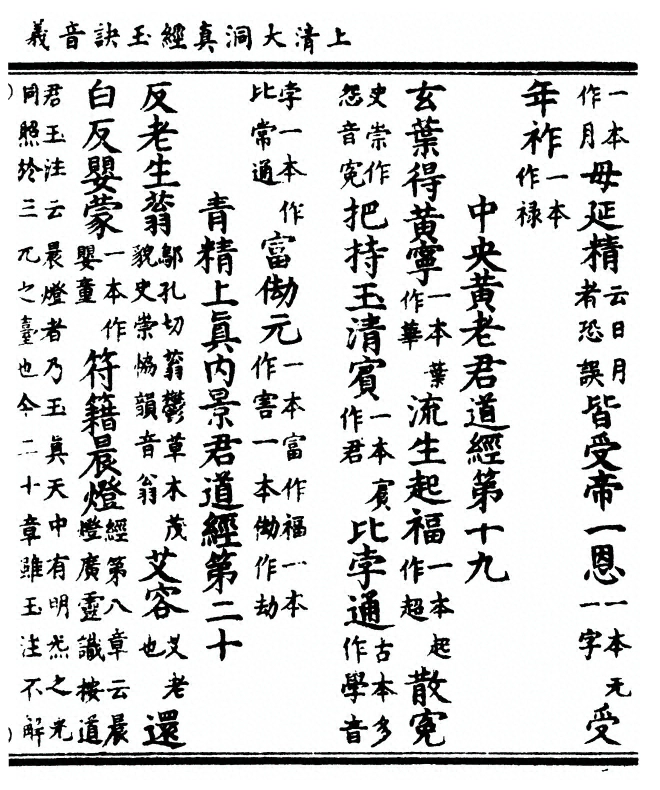 上清大洞真經玉訣音義
一本作月毋延精云日月者恐誤皆受帝一恩一本无一字受
年祚一本作禄
中央黃老君道經第十九
玄葉得黃寧一本葉作華流生起福一本起作超散寃
史崇作怨音寃把持玉清賓一本賓作君比孛通古本多作學音
孛一本作比常通富㑃元一本富作福一本作害一本㑃作劫
青精上眞內景君道經第二十
反老生蓊鄔孔切蓊鬱草木茂貌史崇協韻音翁艾容艾老也還
白反嬰蒙一本作嬰童符籍晨燈經第八章云晨燈廣靈識按道
君玉注云晨燈者乃玉真天中有明炁之光同照於三兀之臺也今二十章雖玉注不解